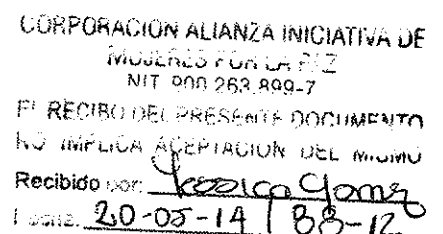 CORPORACIÓN ALIANZA INICIATIVA DE
MUJERES POR LA PAZ
NIT. 900.263.899-7
EL RECIBO DEL PRESENTE DOCUMENTO
NO IMPLICA ACEPTACIÓN DEL MISMO
Recibido por: Jessica Gomez
20-05-14 |